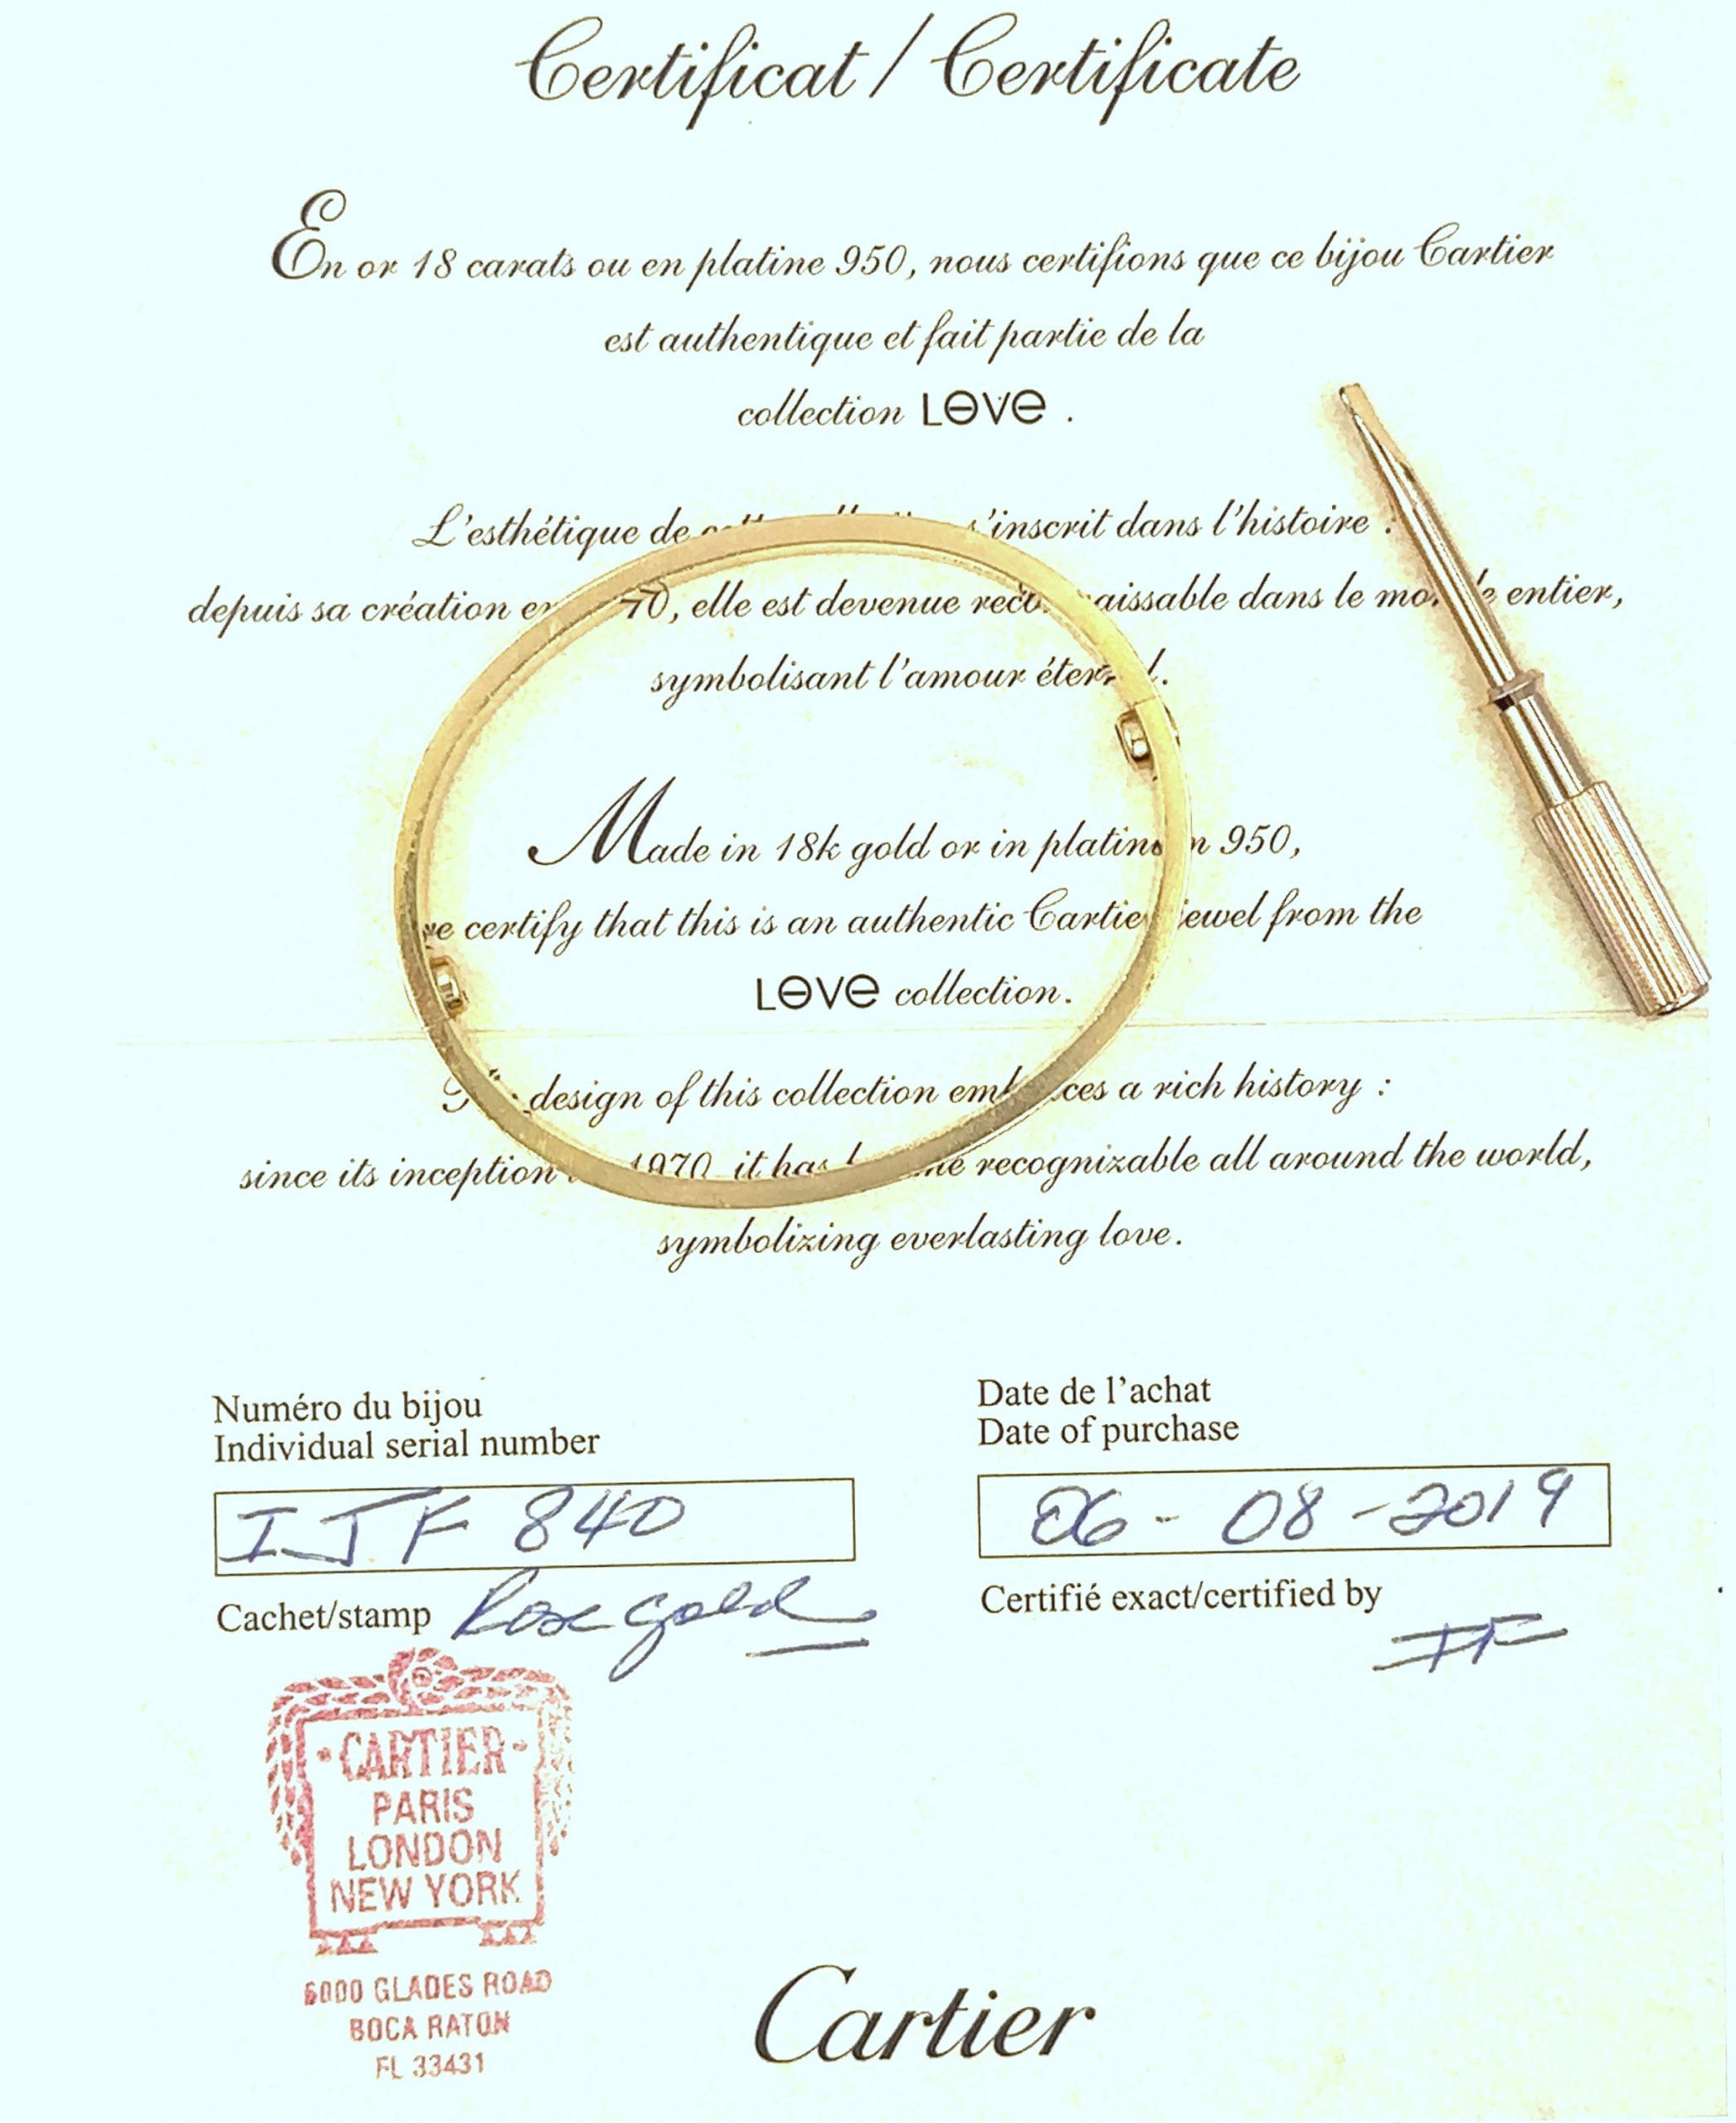 Certificat / Certificate
En or 18 carats ou en platine 950, nous certifions que ce bijou Cartier
est authentique et fait partie de la
collection LOVE .
L'esthétique de s'inscrit dans l'histoire :
depuis sa création 70, elle est devenue dans le entier,
symbolisant l'amour
Made in 18k gold or in 950,
certify that this is an authentic Cartier jewel from the
LOVE collection.
design of this collection a rich history :
since its inception 1970 it has recognizable all around the world,
symbolizing everlasting love.
Numéro du bijou
Individual serial number
IJF 840
Date de l'achat
Date of purchase
06 - 08 - 2019
Cachet/stamp Rose gold
Certifié exact/certified by
IF
CARTIER
PARIS
LONDON
NEW YORK
6000 GLADES ROAD
BOCA RATON
FL 33431
Cartier